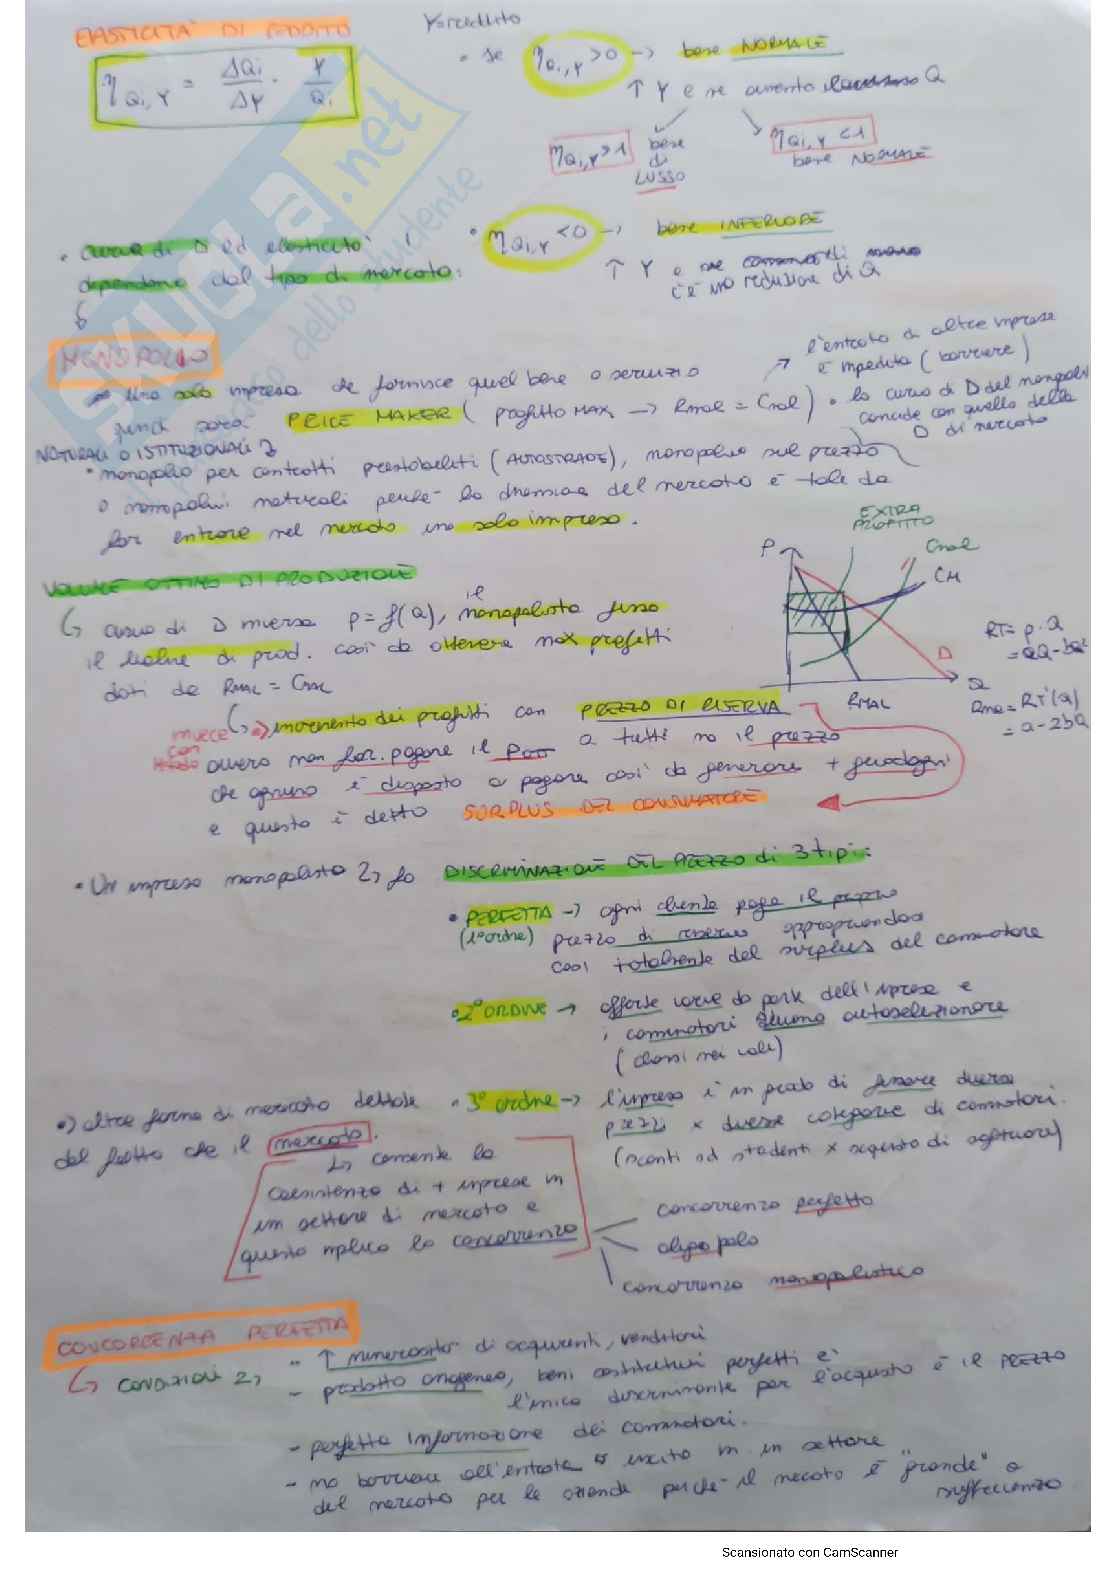 ELASTICITÀ DI REDDITO
Y=reddito
η Qi,Y = ΔQi/ΔY · Y/Qi
• se η Qi,Y >0 → bene NORMALE
↑ Y e ne aumenta Q
η Qi,Y >1 bene di LUSSO
η Qi,Y <1 bene NORMALE
• η Qi,Y <0 → bene INFERIORE
↑ Y e
c'è una riduzione di Q
• curva di D ed elasticità
dipendono dal tipo di mercato:
MONOPOLIO
Una sola impresa che fornisce quel bene o servizio
quindi sarà PRICE MAKER ( profitto MAX → Rmal = Cmal )
l'entrata di altre imprese
è impedita ( barriere )
• la curva di D del monopoli
coincide con quella della
D di mercato
NATURALI O ISTITUZIONALI
• monopolio per contratti prestabiliti (AUTOSTRADE), monopolio sul prezzo
o monopolini naturali perché la dinamica del mercato è tale da
far entrare nel mercato una sola impresa.
VOLUME OTTIMO DI PRODUZIONE
curva di D inversa p=f(Q), il monopolista fissa
il volume di prod. così da ottenere max profitti
dati da RMAL = CMAL
EXTRA PROFITTO
P
Cmal
CM
D
Q
RMAL
RT= p·Q
= aQ-bQ²
Rma= RT'(Q)
= a-2bQ
invece con
incremento dei profitti con PREZZO DI RISERVA
ovvero non far pagare il p a tutti ma il prezzo
che ognuno è disposto a pagare così da generare + guadagni
e questo è detto SURPLUS DEL CONSUMATORE
• Un'impresa monopolista fa DISCRIMINAZIONE DEL PREZZO di 3 tipi:
• PERFETTA → ogni cliente paga il proprio
(1°ordine) prezzo di riserva appropriandosi
così totalmente del surplus del consumatore
• 2° ORDINE → offerte varie da parte dell'impresa e
i consumatori devono autoselezionare
(classi nei voli)
• 3° ordine → l'impresa è in grado di fissare diversi
prezzi x diverse categorie di consumatori.
(sconti ad studenti x acquisto di software)
•) altre forme di mercato dettate
dal fatto che il mercato.
consente la
coesistenza di + imprese in
un settore di mercato e
questo implica la concorrenza
concorrenza perfetta
oligopolio
concorrenza monopolistica
CONCORRENZA PERFETTA
CONDIZIONI
- ↑ numerosità di acquirenti, venditori
- prodotto omogeneo, beni sostitutivi perfetti e
l'unica discriminante per l'acquisto è il PREZZO
- perfetta informazione dei consumatori.
- no barriere all'entrata o uscita in un settore
del mercato per le aziende perché il mercato è "grande" a
sufficienza
SKUOLA.net
Scansionato con CamScanner